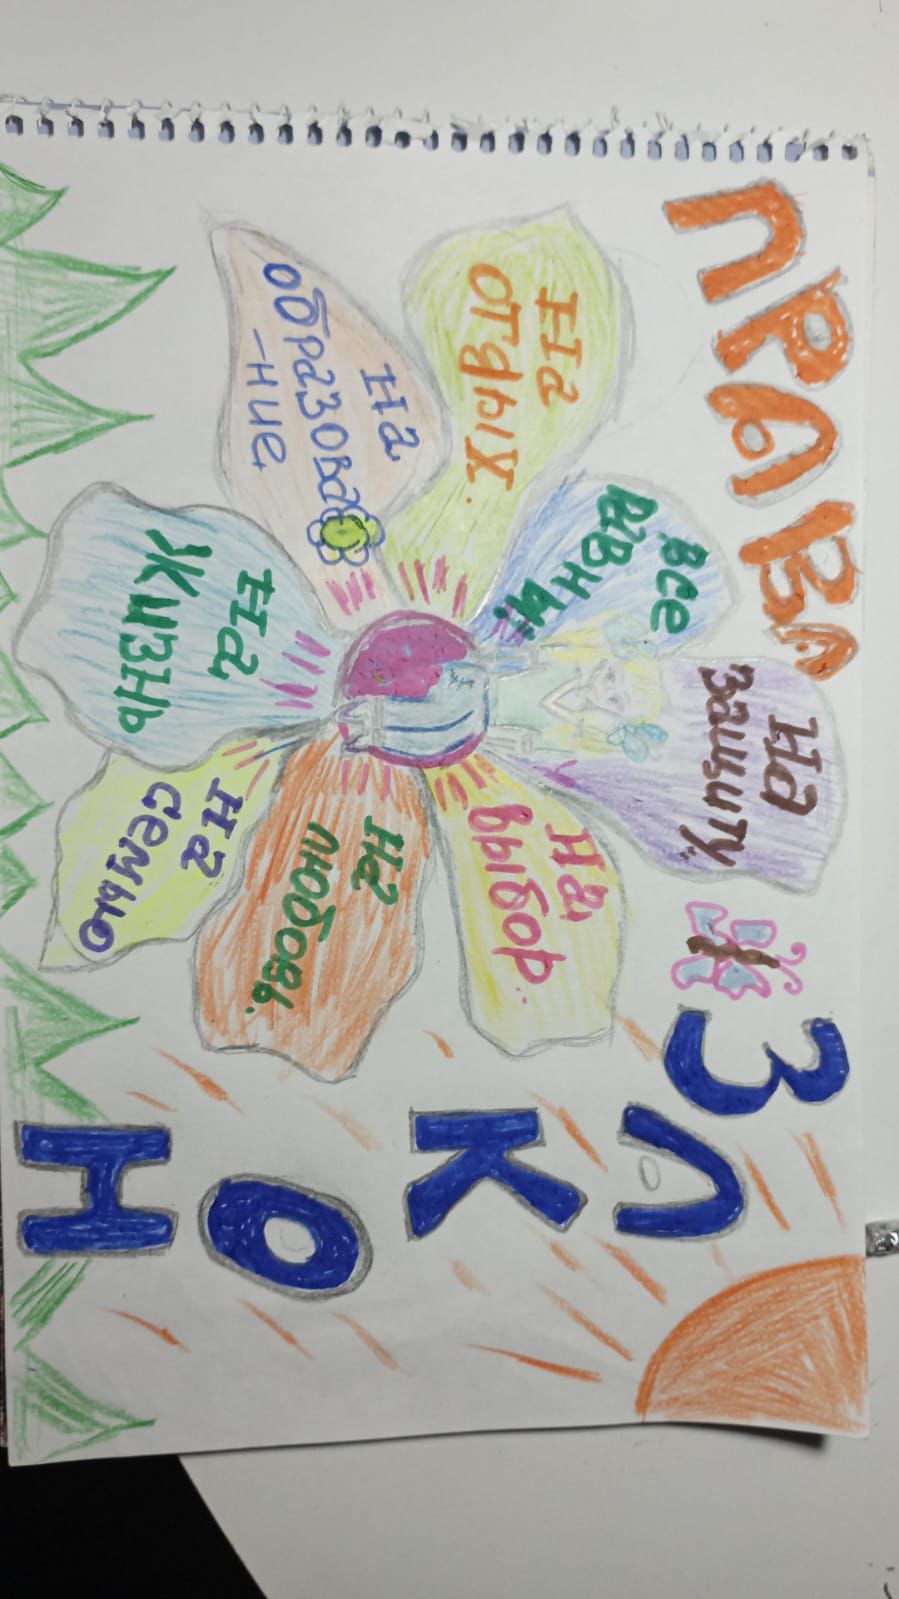 ПРАВА
ЗАКОН
на
отдых.
на
образова
-ние.
на
жизнь
на
семью
на
любовь.
на
выбор.
на
защиту.
все
равны!